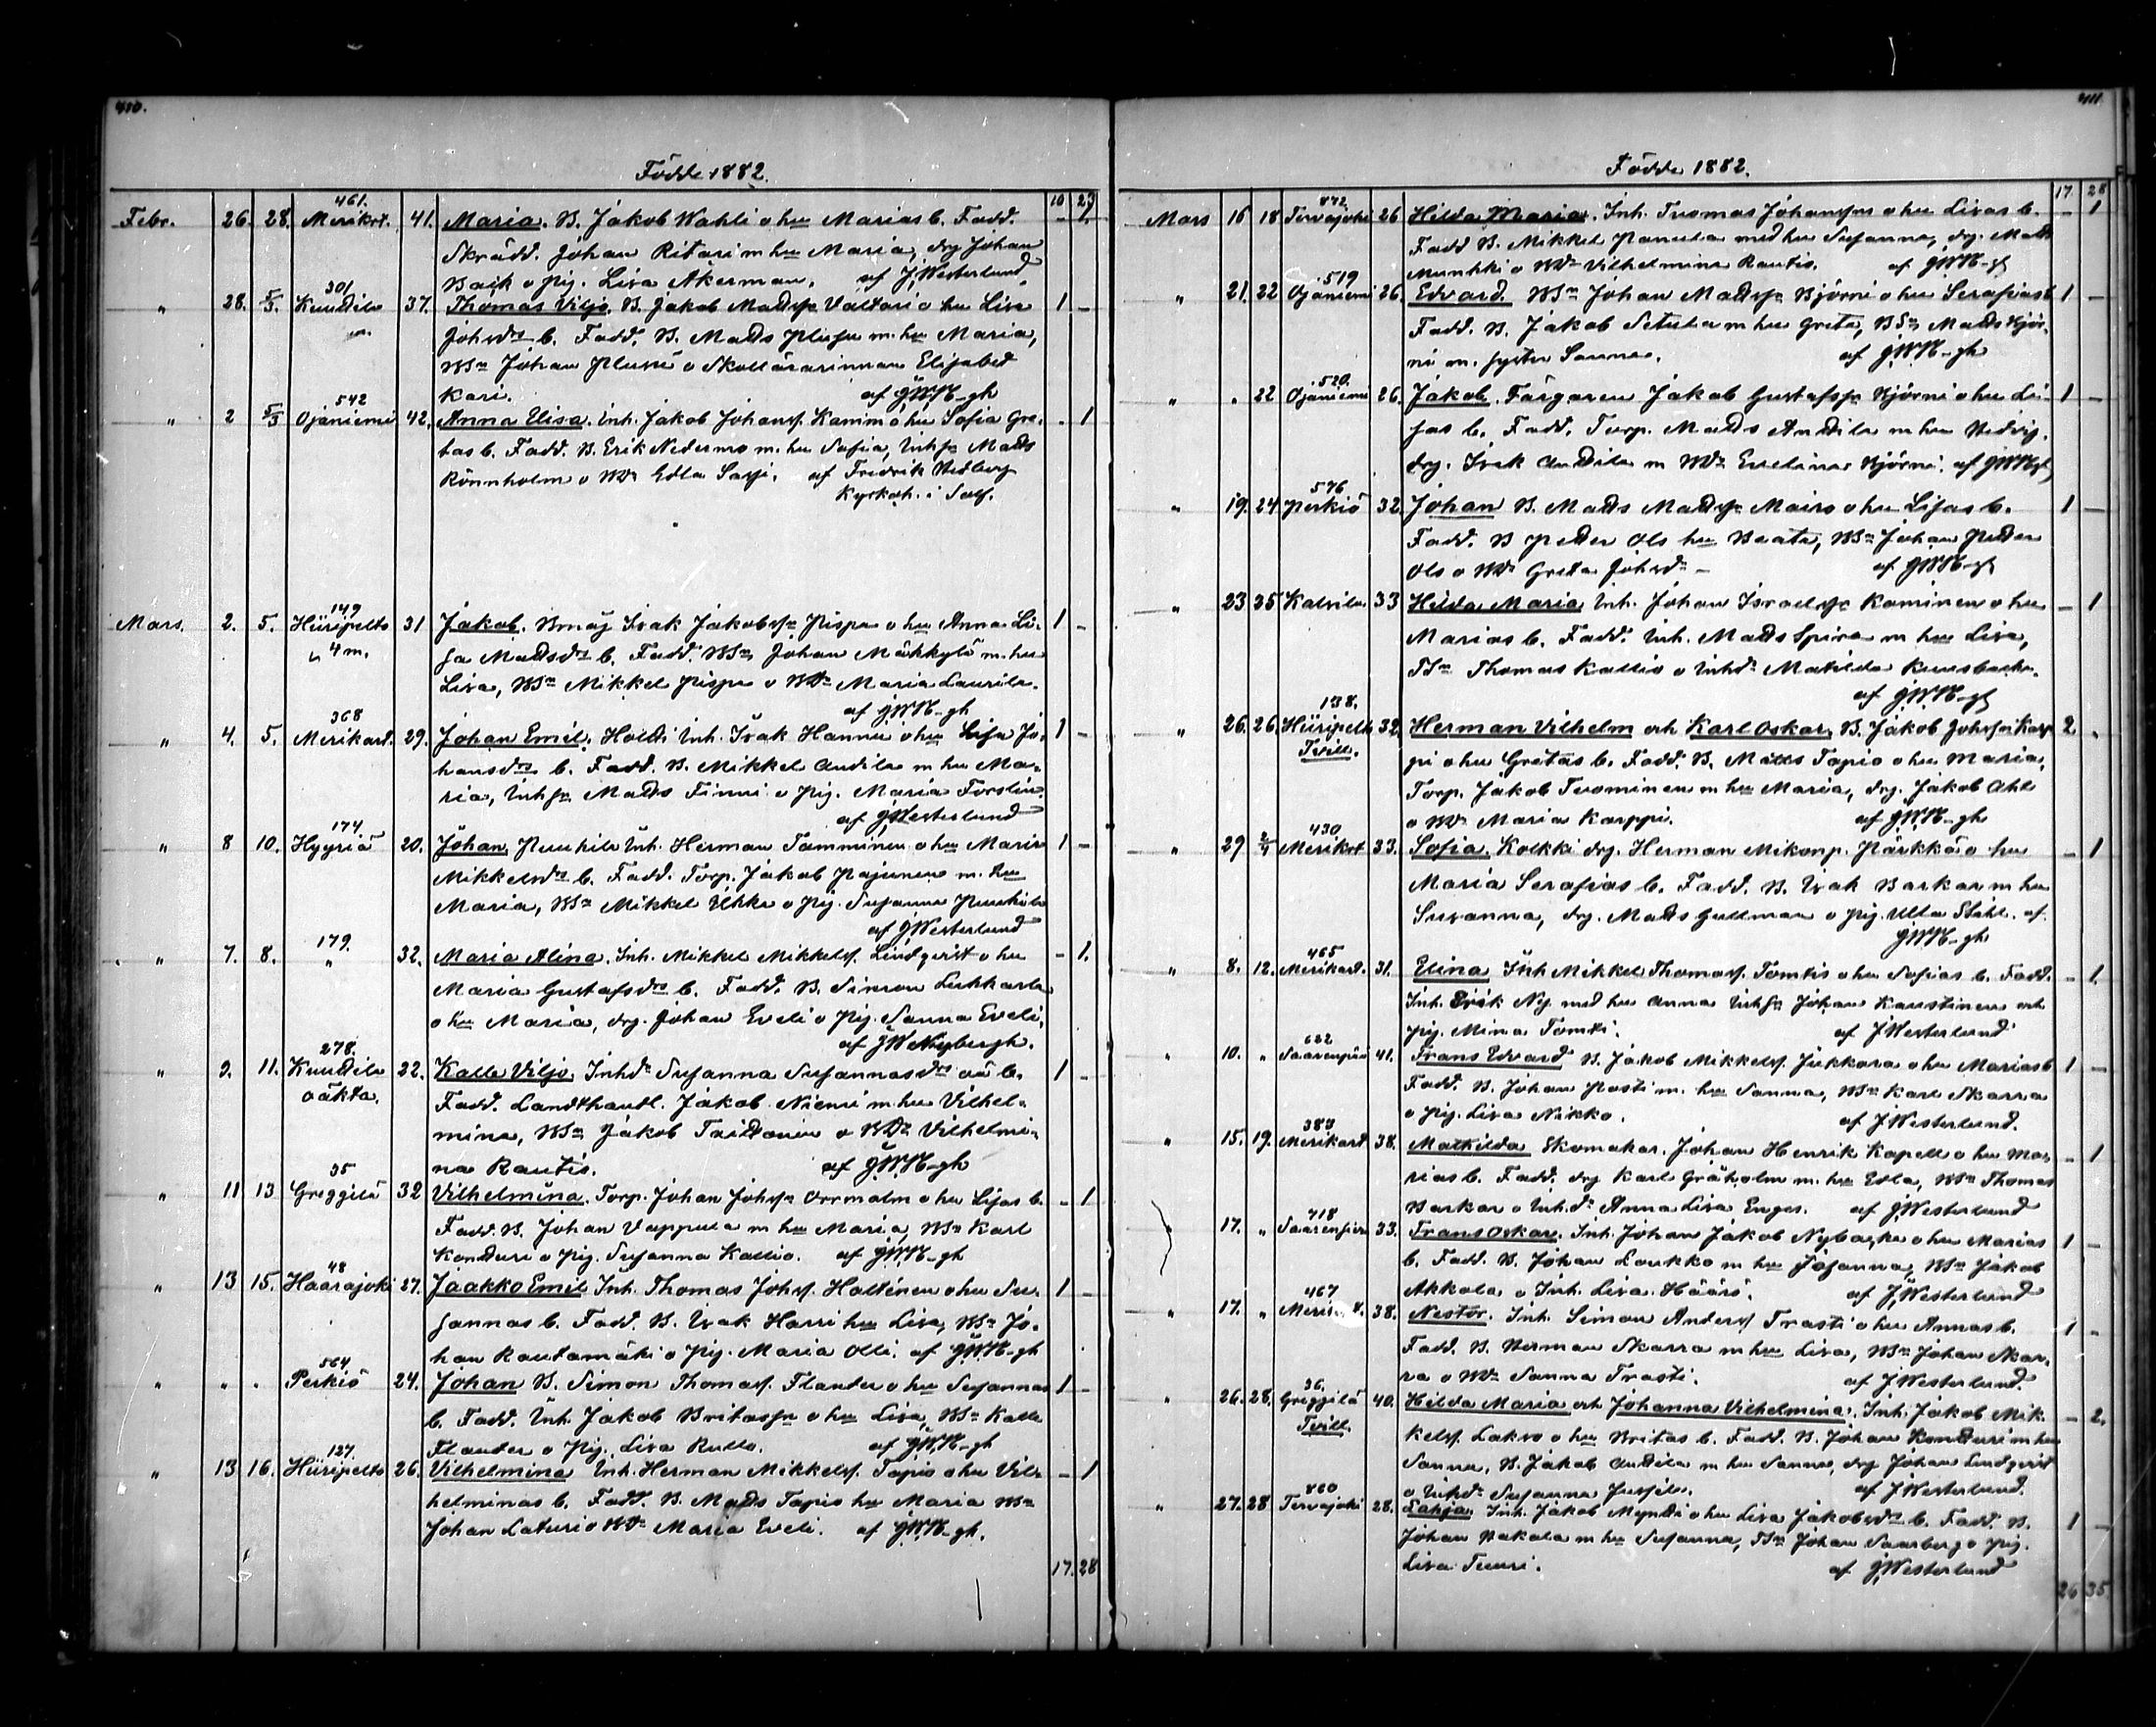 410.
Födde 1882.
10 23
461.
Febr. 26. 28. Merikrt. 41. Maria. B. Jakob Wahli o hu Marias b. Fadd. - 1.
Skrädd. Johan Ritari m hu Maria, drg Johan
Baik o pig. Lisa Åkerman. af J, Westerlund.
301
" 28. 5/3. Kuudila 37. Thomas Viljo. B. Jakob Madsfr Valtari o hu Lisa 1 -
Johsdr b. Fadd. B. Matts m. hu Maria,
Bsn Johan o Skollärarinnan Elisabet
Kari. af GWN-gh
542
" 2 5/3 Ojaniemi 42. Anna Elisa. Inh. Jakob Johansf. Kammo hu Sofia Gre- - 1
tas b. Fadd. B. Erik Nedermo m. hu Sofia, Inhsn Matts
Rönnholm o Bdr Edla Sassi. af Fredrik Hedberg
Kyrkoh. i
149
Mars. 2. 5. Hiiripelto 31 Jakob. Bmåg Isak Jakobsfr Pispa o hu Anna Li- 1 -
4 m. sa Madsdrs b. Fadd. Bsn Johan Mäkkylä m. hu
Lisa, Bsn Mikkel Pispa o Bdr Maria Laurila.
af GWN-gh
368
" 4. 5. Merikart. 29. Johan Emil. Inh. Isak Hannu o hu Lisa Jo- 1 -
hansdrs b. Fadd. B. Mikkel Andila m hu Ma-
ria, Inhsn Matts Finni o Pig. Maria Forslin.
af J,Westerlund
174
" 8 10. Hyyriä 20. Johan, Puuhila Inh. Herman Tamminen o hu Maria 1 -
Mikkelsdrs b. Fadd. Torp. Jakob Pajunen m. hu
Maria, Bsn Mikkel Uhka o Pig. Susanna Puuhila
af J,Westerlund
179.
" 7. 8. " 32. Maria Alina. Inh. Mikkel Mikkelsf. Lindqvist o hu - 1.
Maria Gustafsdrs b. Fadd. B. Simon Lukkarla
o hu Maria, drg. Johan Eveli o Pig. Sanna Eveli,
af J W Nybergh.
278.
" 9. 11. Kuudila 22. Kalle Viljo. Inhdr Susanna Susannasdrs oä b. 1 -
oäkta. Fadd. Landthandl. Jakob Niemi m hu Vilhel-
mina, Bsn Jakob o Bdr Vilhelmi-
na Rautio. af GWN-gh
35
" 11 13 Greggilä 32 Vilhelmina. Torp. Johan Johsfr Orrmalm o hu Lisas b. - 1
Fadd. B. Johan Vappula m hu Maria, Bsn Karl
Konduri o pig. Susanna Kallio. af GWN-gh
48
" 13 15. Haarajoki 27. Jaakko Emil Inh. Thomas Johsf. Haltinen o hu Su- 1 -
sannas b. Fadd. B. Isak Harri hu Lisa, Bsn Jo-
han Rautamäki o Pig. Maria Olli. af GWN-gh
564
" " " Perkiö 24. Johan B. Simon Thomasf. Flander o hu Susannas 1 -
b. Fadd. Inh. Jakob Britasfr o hu Lisa, Bsn Kalle
Flander o Pig. Lisa Rullo. af GWN-gh
127.
" 13 16. Hiiripelto 26. Vilhelmina Inh. Herman Mikkelsf. Tapio o hu Vil- - 1
helminas b. Fadd. B. Matts Tapio hu Maria Bsn
Johan Laturi o Bdr Maria Eveli. af GWN-gh.
17. 28
411
Födde 1882.
17. 28
872.
Mars 16 18 Tervajoki 26 Hilda Maria. Inh. Tuomas Johansfrs o hu Lisas b. - 1
Fadd B. Mikkel Panula med hu Susanna, drg. Matts
Munkki o Bdr Vilhelmina Rautio. af GWN-gh
519
" 21. 22 Ojaniemi 26. Edvard. Bsn Johan Madsfr Björni o hu Serafias b 1 -
Fadd. B. Jakob Setula m hu Greta, Bsn Matts Björ-
ni m. syster Sanna. af GWN-gh
520.
" " 22 Ojaniemi 26. Jakob. Färgaren Jakob Gustafsfr Björni o hu Li- 1 -
sas b. Fadd. Torp. Matts Andila m hu Hedvig.
drg. Isak Andila m Bdr Evelina Björni. af GWN-gh
576
" 19. 24. Perkiö 32. Johan B. Matts Madsfr Mairo o hu Lisas b. 1 -
Fadd. B Petter Ols hu Beata, Bsn Johan Petter
Ols o Bdr Greta Johsdr - af GWN-gh
" 23 25 Katvila 33 Hilda Maria Inh. Johan Israelsfr Kaminen o hu - 1
Marias b. Fadd. Inh. Matts Spira m hu Lisa,
Bsn Thomas Kallio o Inhdr Matilda
af GWN-gh
138.
" 26. 26. Hiiripelto 32. Herman Vilhelm och Karl Oskar, B. Jakob Johsfn Karp 2 -
Tvill. pi o hu Gretas b. Fadd. B. Matts Tapio o hu Maria,
Torp. Jakob Tuominen m hu Maria, drg. Jakob Ahl
o Bdr Maria Karppi. af GWN-gh
430
" 29 2/4 Merikrt 33. Sofia. Kolkki drg. Herman Mikonp. Pärkkä o hu - 1
Maria Serafias b. Fadd. B. Isak Barkar m hu
Susanna, drg. Matts Gullman o pig. Ulla Ståhl. af
GWN-gh
465
" 8. 12. Merikart. 31. Elina. Inh Mikkel Thomasf. Tomtis o hu Sofias b. Fadd. - 1.
Inh. Erik Ny. med hu Anna Inhsn Johan Kaustinen och
pig. Mina Tomti. af J Westerlund
622
" 10. " Saarenpää 41. Frans Edvard B. Jakob Mikkelsf. Jukkara o hu Marias b 1 -
Fadd. B. Johan Posti m. hu Sanna, Bsn Karl Skarra
o pig. Lisa Nikko. af J Westerlund.
384
" 15. 19. Merikart 38. Matkilda Skomakar. Johan Henrik Kapell o hu Ma- - 1
rias b. Fadd. drg Karl Gräholm m. hu Edla, Bsn Thomas
Barkar o Inh.dr Anna Lisa Enges. af J,Westerlund
718
" 17. " Saarenpää 33. Frans Oskar. Inh. Johan Jakob Nybacka o hu Marias 1 -
b. Fadd. B. Johan Loukko m hu Josanna, Bsn Jakob
Akkola o Inh. Lisa Hääri. af J,Westerlund
467
" 17. " Merikrt. 38. Nestor. Inh. Simon Andersf Trasti o hu Annas b. 1 -
Fadd. B. Herman Skarra m hu Lisa, Bsn Johan Skar-
ra o Bdr Sanna Trasti. af J Westerlund.
36.
" 26. 28. Greggilä 40. Hilda Maria och Johanna Vilhelmina. Inh. Jakob Mik- - 2.
Tvill. kelsf. Lakso o hu Britas b. Fadd. B. Johan Konduri m hu
Sanna, B. Jakob Andila m hu Sanna, drg Johan Lindqvist
o Inhdr Susanna Jussila. af J Westerlund.
860
" 27. 28 Tervajoki 28. Lahja. Inh. Jakob Mynti o hu Lisa Jakobsdrs b. Fadd. B. 1 -
Johan Hakala m hu Susanna, Bsn Johan Saarberg o pig.
Lisa Tuuri. af J,Westerlund
26 35